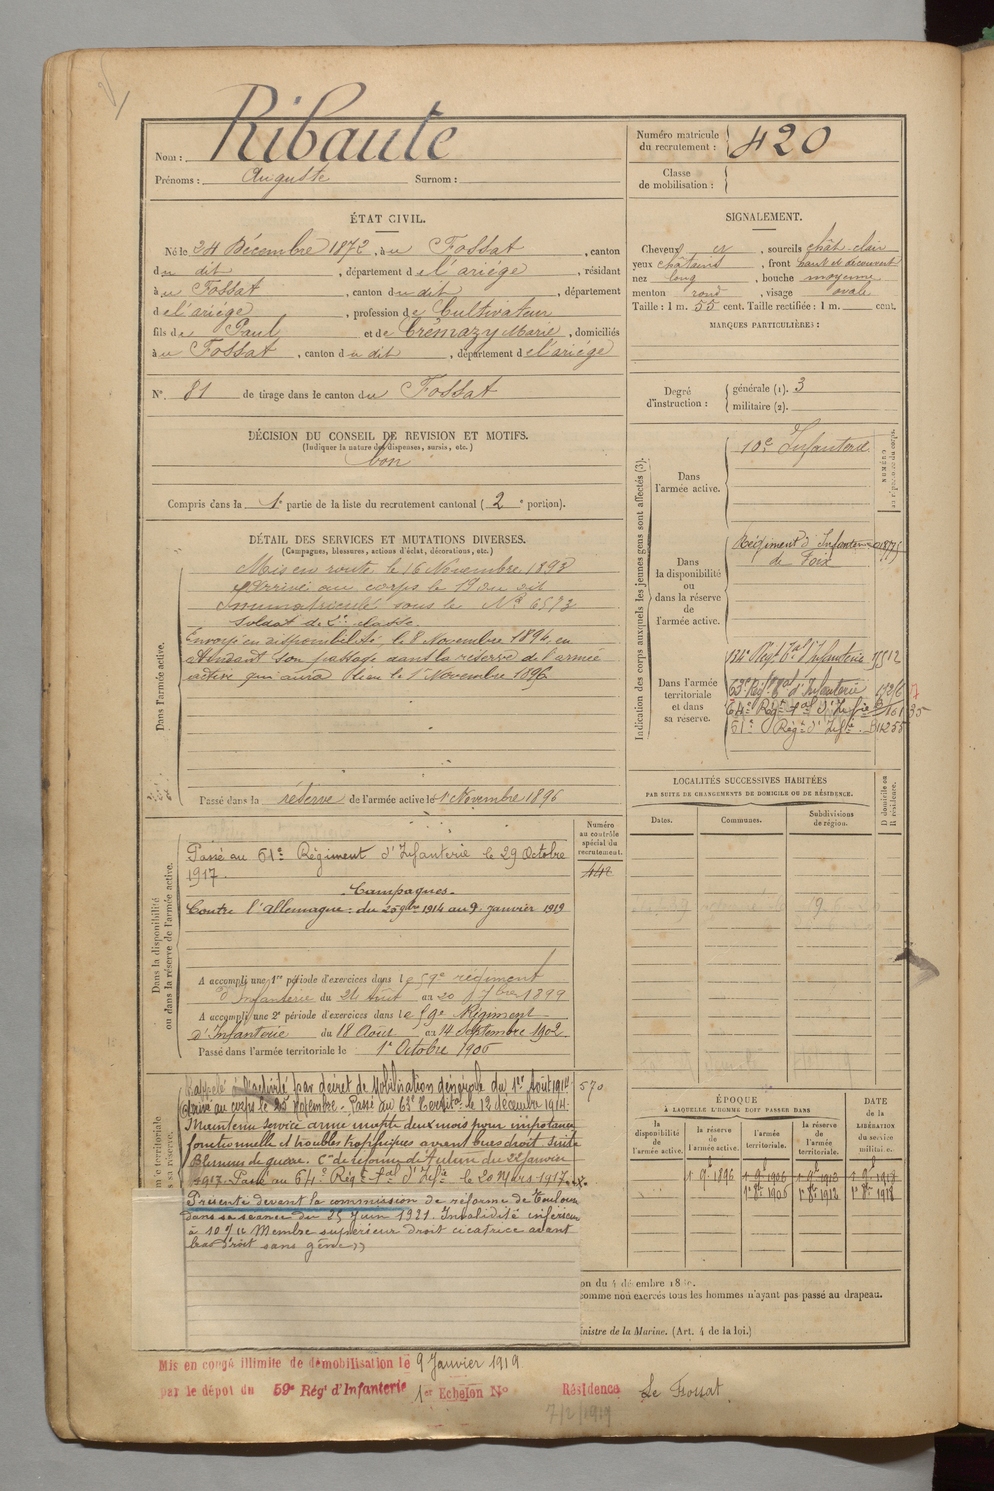 Nom : Ribaute
Prénoms : Auguste Surnom :
Numéro matricule du recrutement : 420
Classe de mobilisation :
ÉTAT CIVIL.
Né le 24 Décembre 1872, à u Fossat, canton
du dit, département de l'ariège, résidant
à u Fossat, canton du dit, département
de l'ariège, profession de Cultivateur
fils de Paul et de Crémazy Marie, domiciliés
à u Fossat, canton du dit, département de l'ariège
N° 81 de tirage dans le canton du Fossat
DÉCISION DU CONSEIL DE REVISION ET MOTIFS.
(Indiquer la nature des dispenses, sursis, etc.)
bon
Compris dans la 1e partie de la liste du recrutement cantonal (2e portion).
SIGNALEMENT.
Cheveux et, sourcils chât. clair
yeux châtains, front haut et découvert
nez long, bouche moyenne
menton rond, visage ovale
Taille : 1 m. 55 cent. Taille rectifiée : 1 m. cent.
MARQUES PARTICULIÈRES :
Degré d'instruction : générale (1). 3
militaire (2).
DÉTAIL DES SERVICES ET MUTATIONS DIVERSES.
(Campagnes, blessures, actions d'éclat, décorations, etc.)
Dans l'armée active.
Mis en route le 16 Novembre 1893
Arrivé au corps le 17 du dit
Immatriculé sous le N° 6573
Soldat de 2e classe.
Envoyé en disponibilité, le 8 Novembre 1894 en
attendant son passage dans la réserve de l'armée
active qui aura lieu le 1er Novembre 1896
Passé dans la réserve de l'armée active le 1er Novembre 1896
Indication des corps auxquels les jeunes gens sont affectés (3).
Dans l'armée active.
10e Infanterie
Dans la disponibilité ou dans la réserve de l'armée active.
Régiment d'Infanterie
de Foix
Dans l'armée territoriale et dans sa réserve.
134e Regt tal d'Infanterie
63e Regt tal d'Infanterie
64e Régt tal d'Infie
61e Régt d'Infie
LOCALITÉS SUCCESSIVES HABITÉES
PAR SUITE DE CHANGEMENTS DE DOMICILE OU DE RÉSIDENCE.
D domicile ou R résidence.
Dates. Communes. Subdivisions de région.
Dans la disponibilité ou dans la réserve de l'armée active.
Numéro au contrôle spécial du recrutement.
442
Passé au 61e Régiment d'Infanterie le 29 Octobre
1917.
Campagnes.
Contre l'Allemagne : du 25 9bre 1914 au 9 janvier 1919
A accompli une 1re période d'exercices dans le 59e régiment
d'Infanterie du 24 août au 20 7bre 1899
A accompli une 2e période d'exercices dans le 59e Régiment
d'Infanterie du 18 Aout au 14 Septembre 1902
Passé dans l'armée territoriale le 1er Octobre 1906
Rappelé à l'activité par décret de Mobilisation générale du 1er Août 1914
Arrivé au corps le 25 Novembre. Passé au 63e Territal le 12 décembre 1914.
570
Maintenu service armé inapte deux mois pour impotence
fonctionnelle et troubles trophiques avant bras droit suite
Blessures de guerre. Con de réforme de Autun du 22 janvier
1917. Passé au 64e Régt tal d'Infie le 20 Mars 1917.
Présenté devant la commission de réforme de Toulouse
dans sa séance du 25 Juin 1921. Invalidité inférieure
à 10 % Membre supérieur droit cicatrice avant
bras droit sans gêne
ÉPOQUE
À LAQUELLE L'HOMME DOIT PASSER DANS
DATE de la LIBÉRATION du service militaire.
la disponibilité de l'armée active. la réserve de l'armée active. l'armée territoriale. la réserve de l'armée territoriale.
1 9e 1896 1 9e 1906 1 9e 1912 1 9e 1918
1er 8e 1906 1er 8e 1912 1er 8e 1918
on du 4 décembre 18
comme non exercés tous les hommes n'ayant pas passé au drapeau.
inistre de la Marine. (Art. 4 de la loi.)
Mis en congé illimité de démobilisation le 9 Janvier 1919
par le dépot du 59e Rég d'Infanterie 1er Echelon N° Résidence Le Fossat
7/2/1919